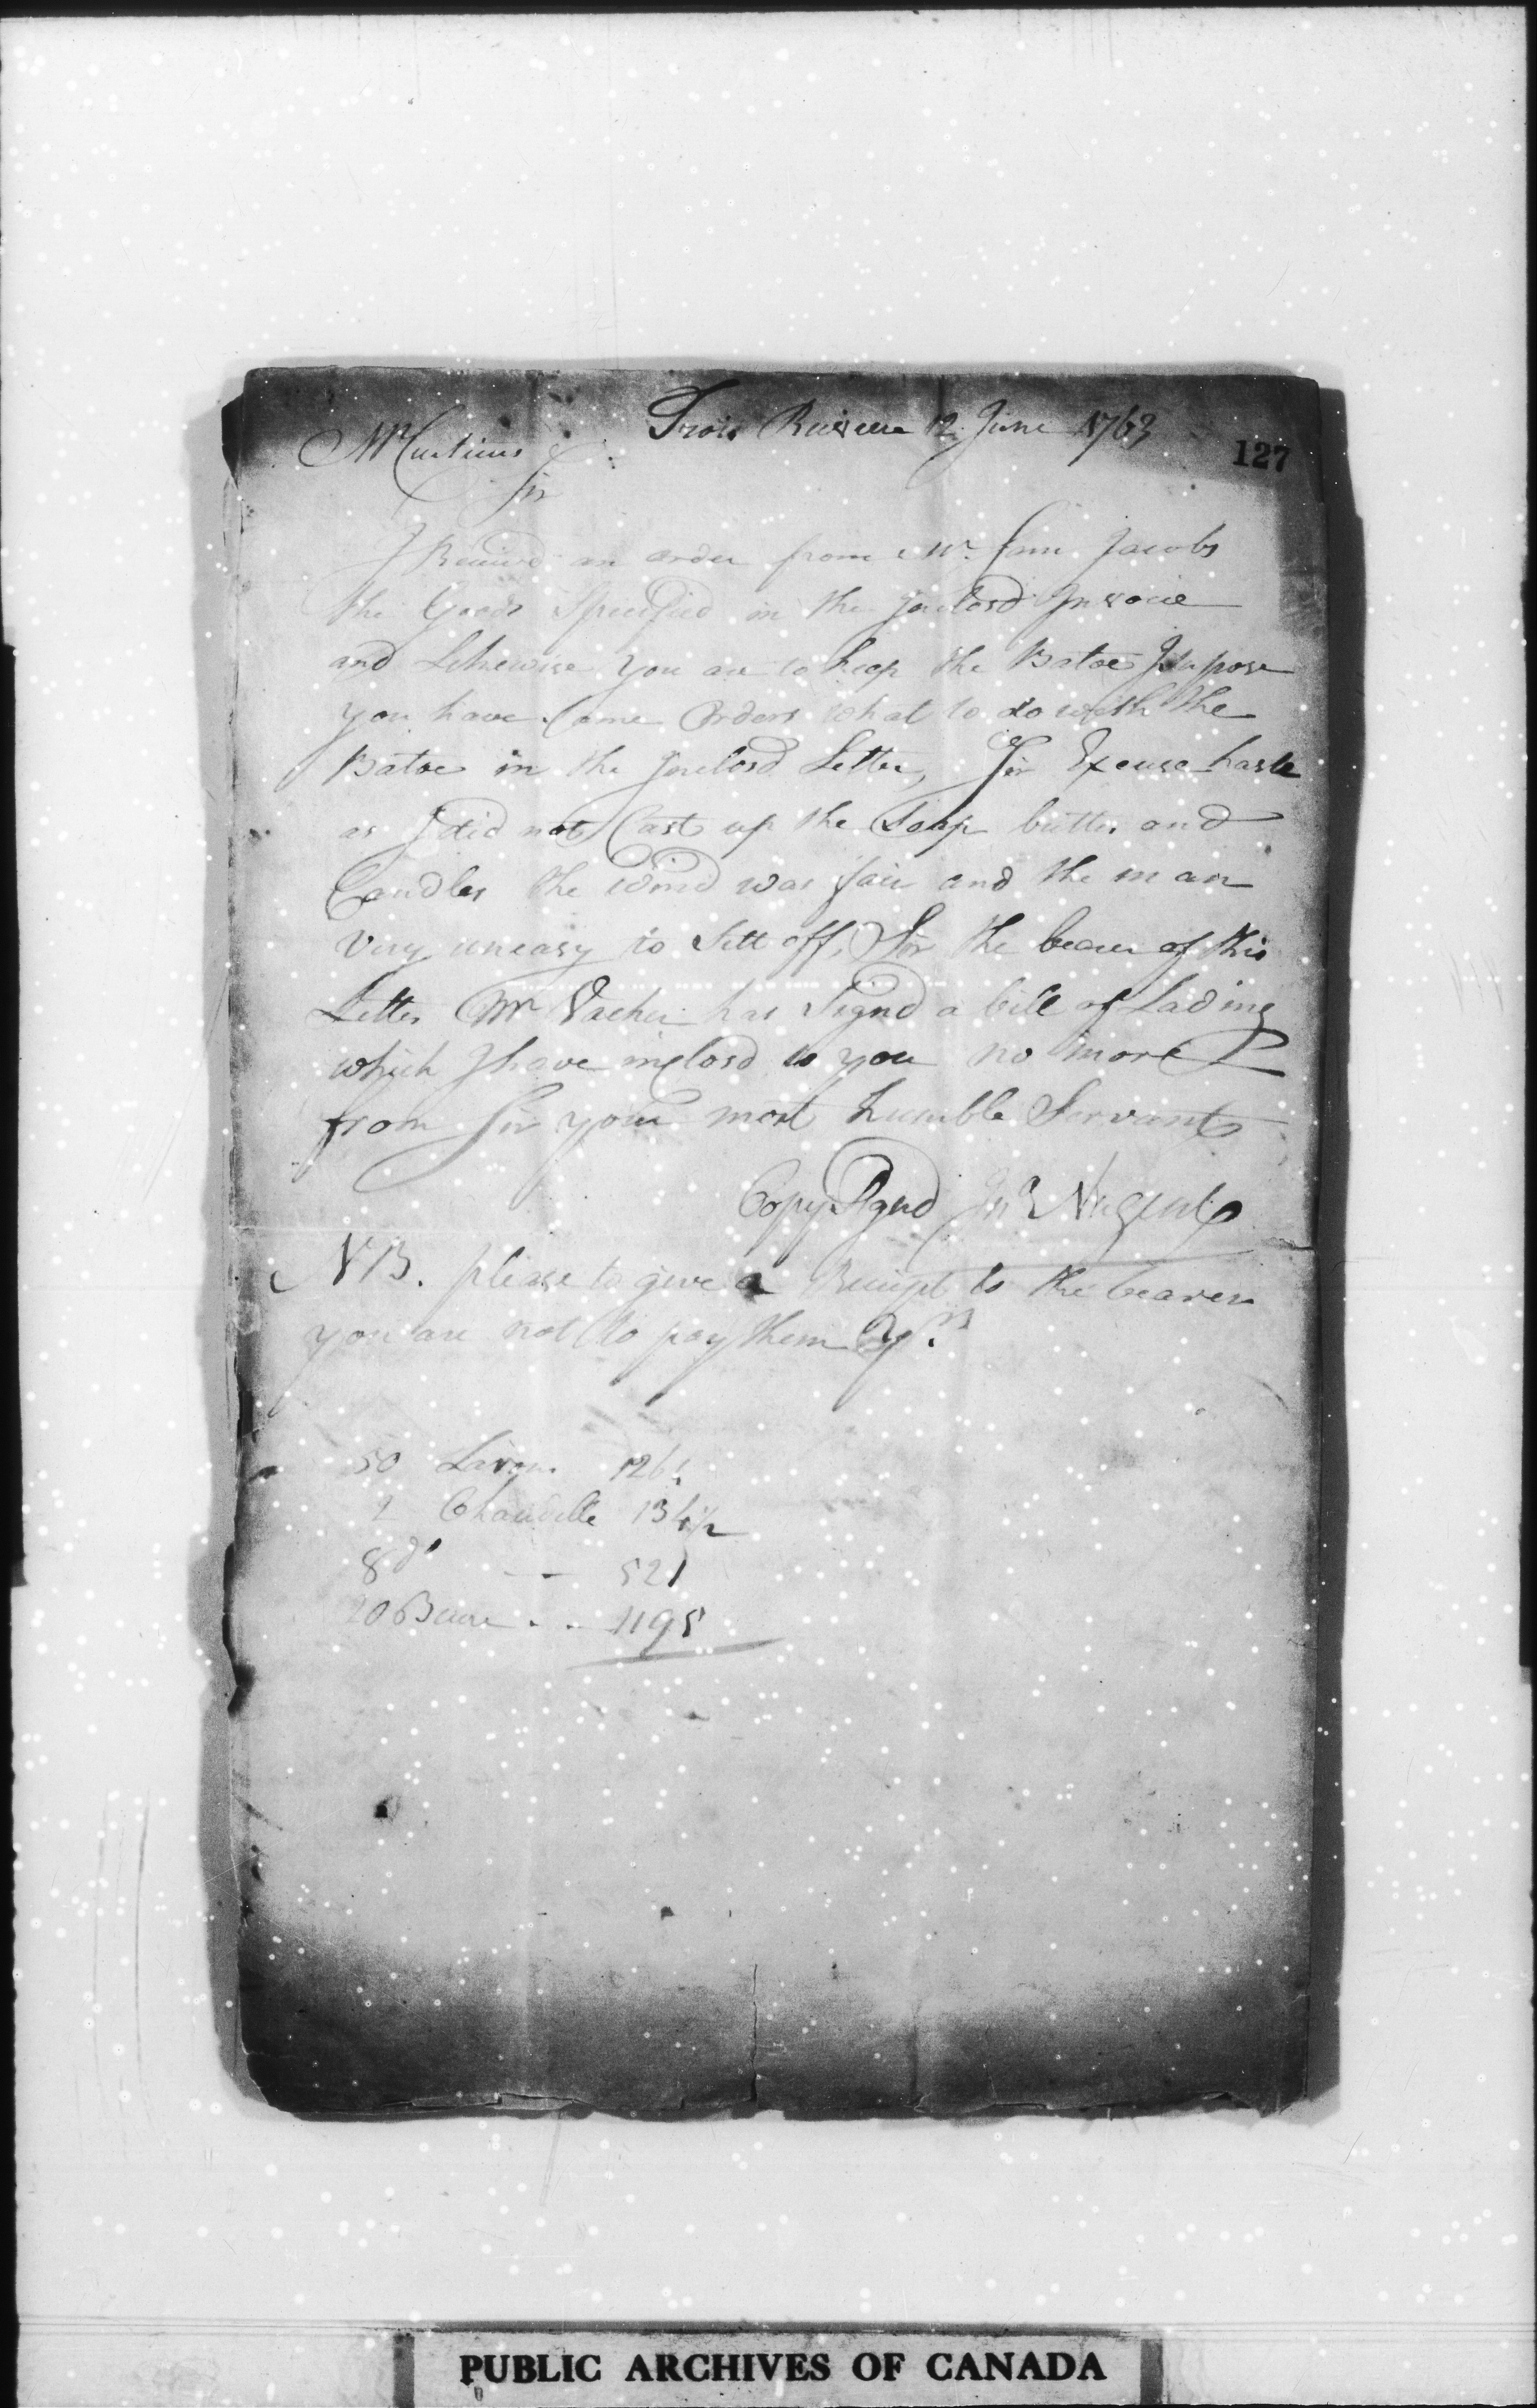 Trois Riviere 12 June 1763
127
Mr Curtius
Sir
I Receivd an order from Mr Sam Jacobs
the Goods Specified in the Inclosd Invoice
and Likewise you are to keep the Batoe I Supose
you have Some Orders what to do with the
Batoe in the Inclosd Letter, Sir Excuse haste
as I did not Cast up the Soap butter and
Candles the wind was fair and the man
very uneasy to Sett off, Sir the bearer of this
Letter Mr Vacher has Signd a bill of Lading
which I have inclosd to you no more
from Sir your most humble Servant
Copy Signd Jno Nugent
NB. please to give a Receipt to the bearer
you are not to pay them
50 Savon 126
2 Chandelle 134 1/2
8 do — 521
20 Beure .. 1195
PUBLIC ARCHIVES OF CANADA